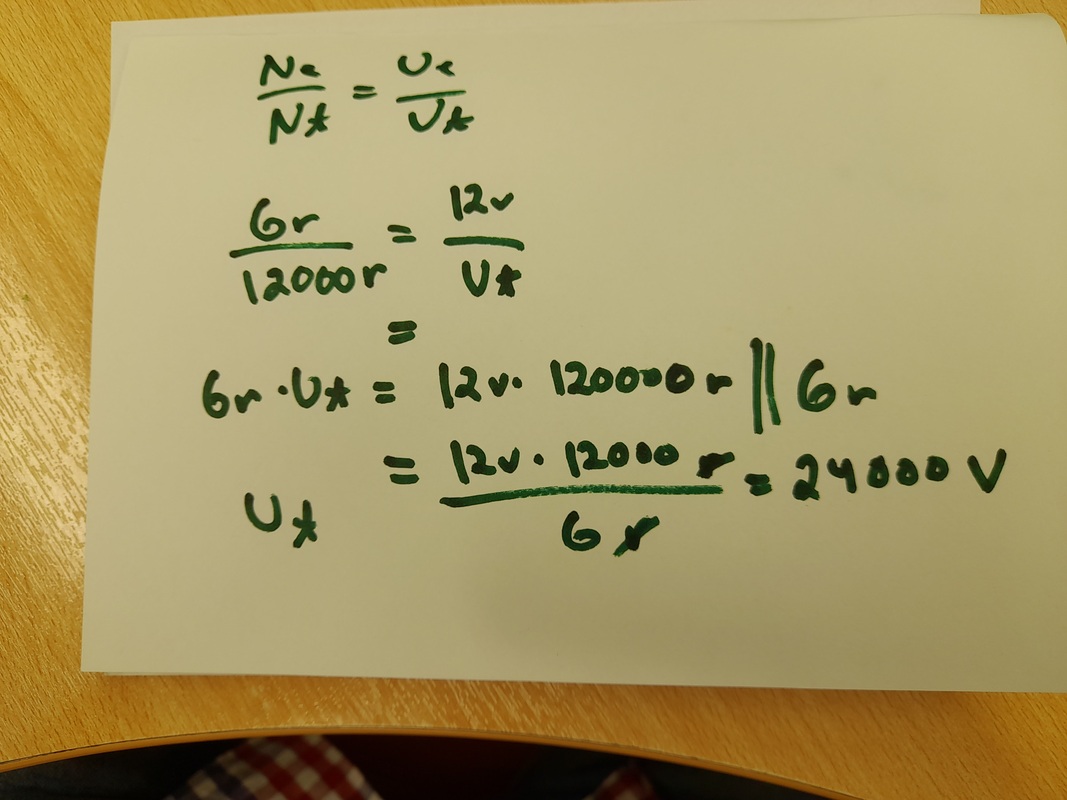 Ne/N* = Ue/U*
6r/12000r = 12v/U*
=
6r · U* = 12v · 120000 r || 6r
U* = 12v · 12000 r / 6 r = 24000 V